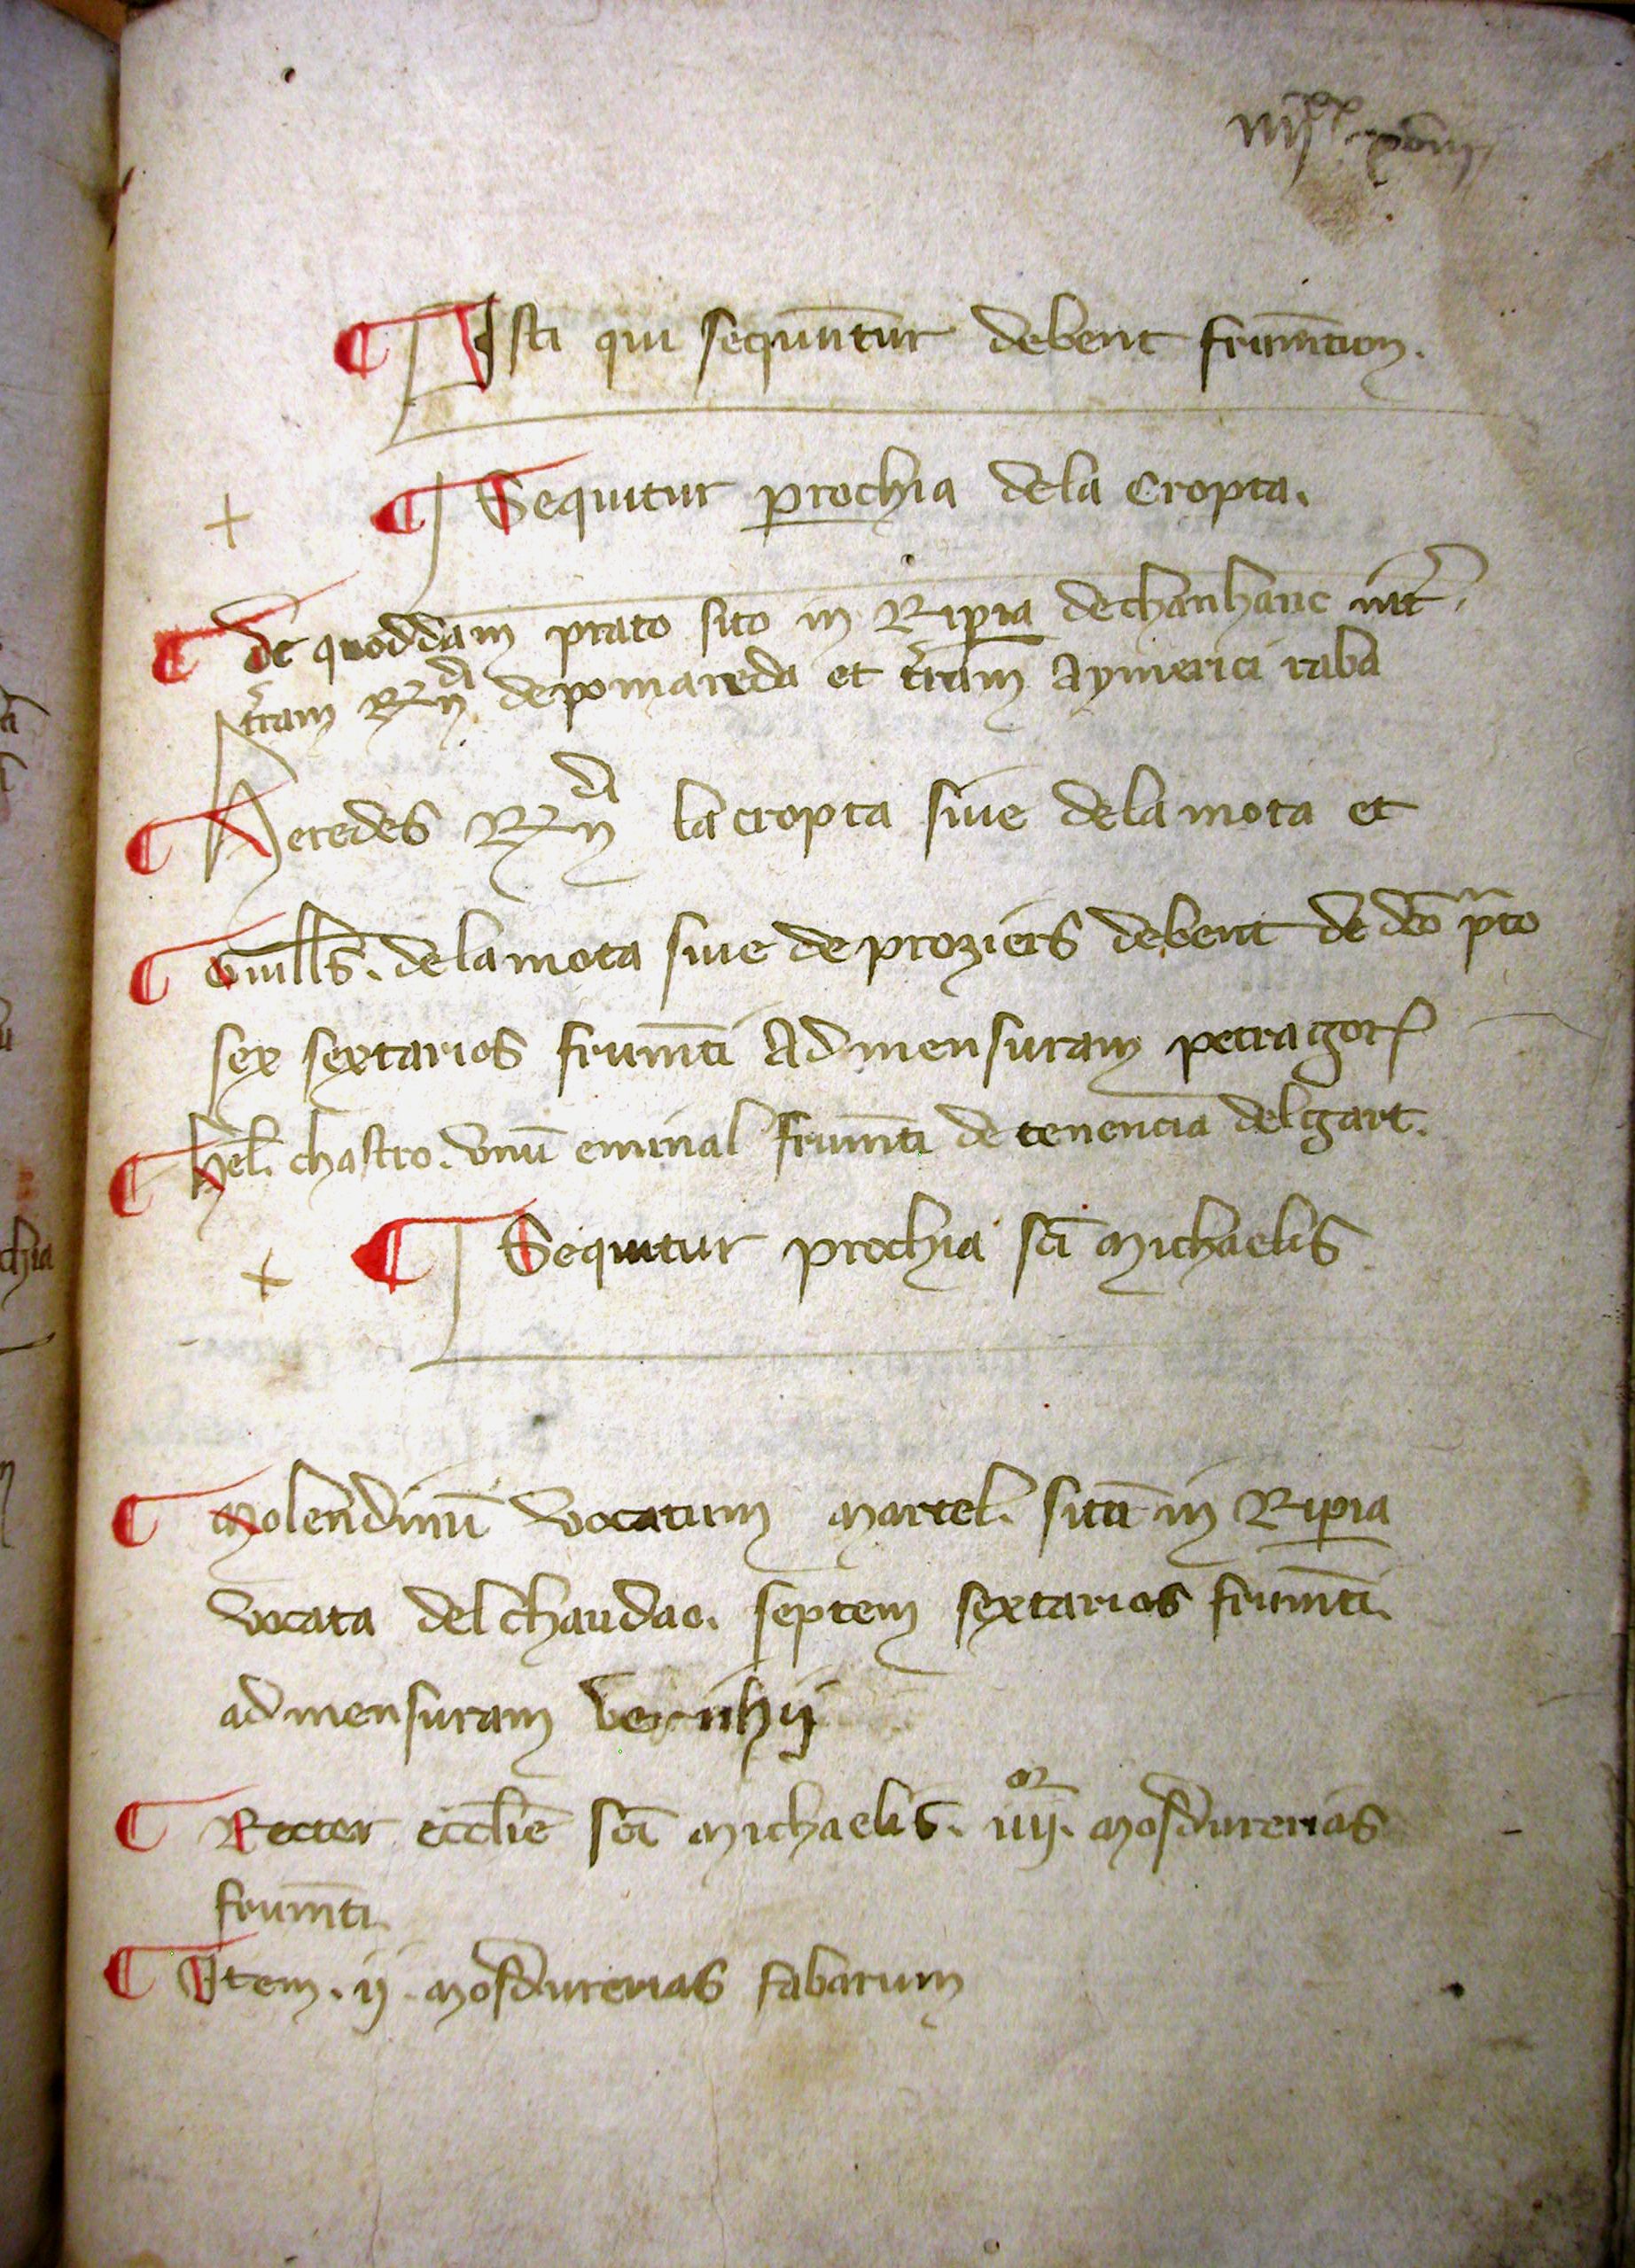 ¶ Isti qui sequntur debent frumtum.
¶ Sequitur prochia dela Cropta.
¶ De quoddam prato sito in Riperia de chanhanc int̄
tram R̄nd̄i de pomareda et tram Aymerici raba
¶ Heredes R̄nd̄i la cropta sive de la mota et
¶ Guill̄s. de la mota sive de proziers debent de dc̄o p̄to
sex sextarios frumti ad mensuram petragor̄
¶ hel̄. chastro. unū eminal frumti de tenencia del gart.
¶ Sequitur prochia sc̄i michaelis
¶ molendinū vocatum martel. sitū in Riperia
vocata del chaudac. septem sextarios frumti.
ad mensuram vernhii
¶ Rector eccl̄ie sc̄i michaelis. iiij.or mosdurerias
frumti.
¶ Item. ij. mosdurerias fabarum